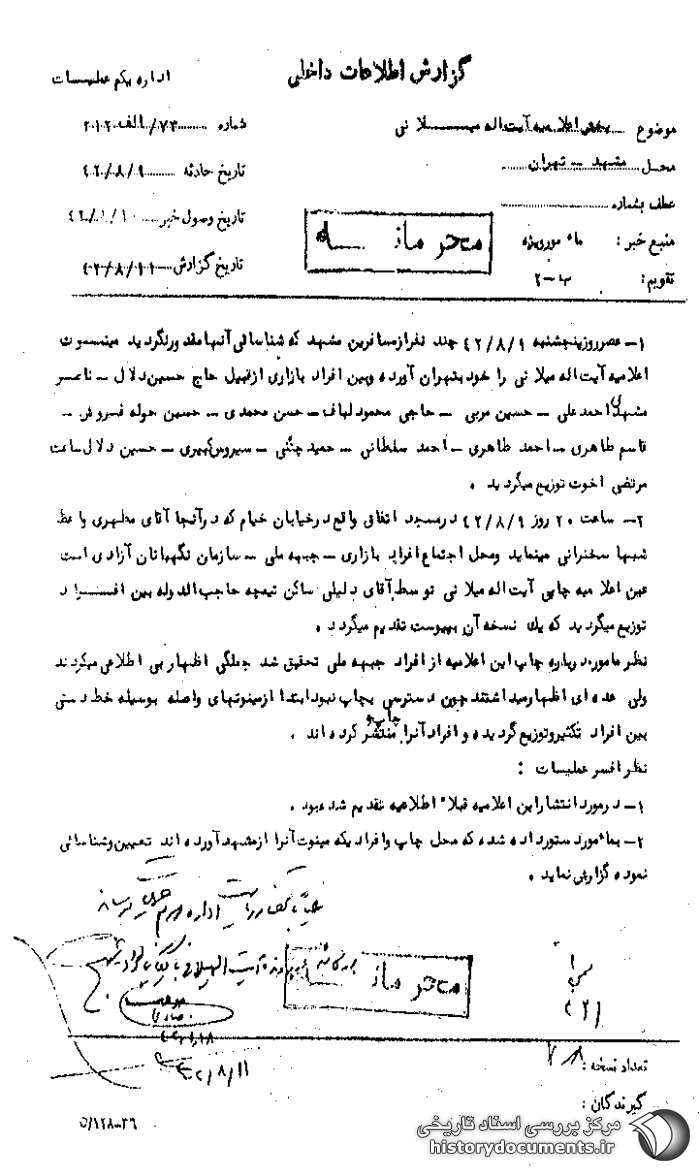 گزارش اطلاعات داخلی
اداره یکم عملیات
موضوع پخش اعلامیه آیت اله میلانی
شماره ۷۳/ الف ۲۰۱۲
محل مشهد – تهران
تاریخ حادثه ۴۲/۸/۹
عطف بشماره
تاریخ وصول خبر
منبع خبر: مامور ویژه
محرمانه
تاریخ گزارش
تقویم: ب-۲
۱- عصر روز پنجشنبه ۴۲/۸/۹ چند نفر از مسافرین مشهد که شناسائی آنها مقدور نگردید مینوت
اعلامیه آیت اله میلانی را خود بتهران آورده و بین افراد بازاری از قبیل حاج حسین دلال – ناصر
مشهدی احمد علی – حسین مربی – حاجی محمود لباف – حسن محمدی – حسین حوله فروش –
قاسم طاهری – احمد طاهری – احمد سلطانی – حمید – سیروس کبیری – حسین دلال ساعت
مرتضی اخوت توزیع میگردید .
۲- ساعت ۲۰ روز ۴۲/۸/۹ در مسجد اتفاق واقع در خیابان خیام که در آنجا آقای مطهری واعظ
شبها سخنرانی مینماید و محل اجتماع افراد بازاری – جبهه ملی – سازمان نگهبانان آزادی است
عین اعلامیه چاپی آیت اله میلانی توسط آقای دلیلی ساکن تیمچه حاجب الدوله بین افراد
توزیع میگردید که یك نسخه آن بپیوست تقدیم میگردد .
نظر مامور درباره چاپ این اعلامیه از افراد جبهه ملی تحقیق شد جملگی اظهار بی اطلاعی میکردند
ولی عده ای اظهار میداشتند چون دسترسی بچاپ نبود ابتدا از مینوتهای واصله بوسیله خط دستی
بین افراد تکثیر و توزیع گردیده و افراد آنرا چاپ و منتشر کرده اند .
نظر افسر عملیات :
۱- در مورد انتشار این اعلامیه قبلا" اطلاعیه تقدیم شده بود .
۲- بمامور دستور داده شده که محل چاپ و افرادیکه مینوت آنرا از مشهد آورده اند تعیین و شناسائی
نموده گزارش نماید .
محرمانه
۴۲/۸/۱۱
تعداد نسخه :
گیرندگان :
۵/۱۲۸-۳۶
مرکز بررسی اسناد تاریخی
historydocuments.ir